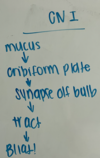 CN I
mucus
↓
cribiform plate
↓
synapse olf bulb
↓
tract
↓